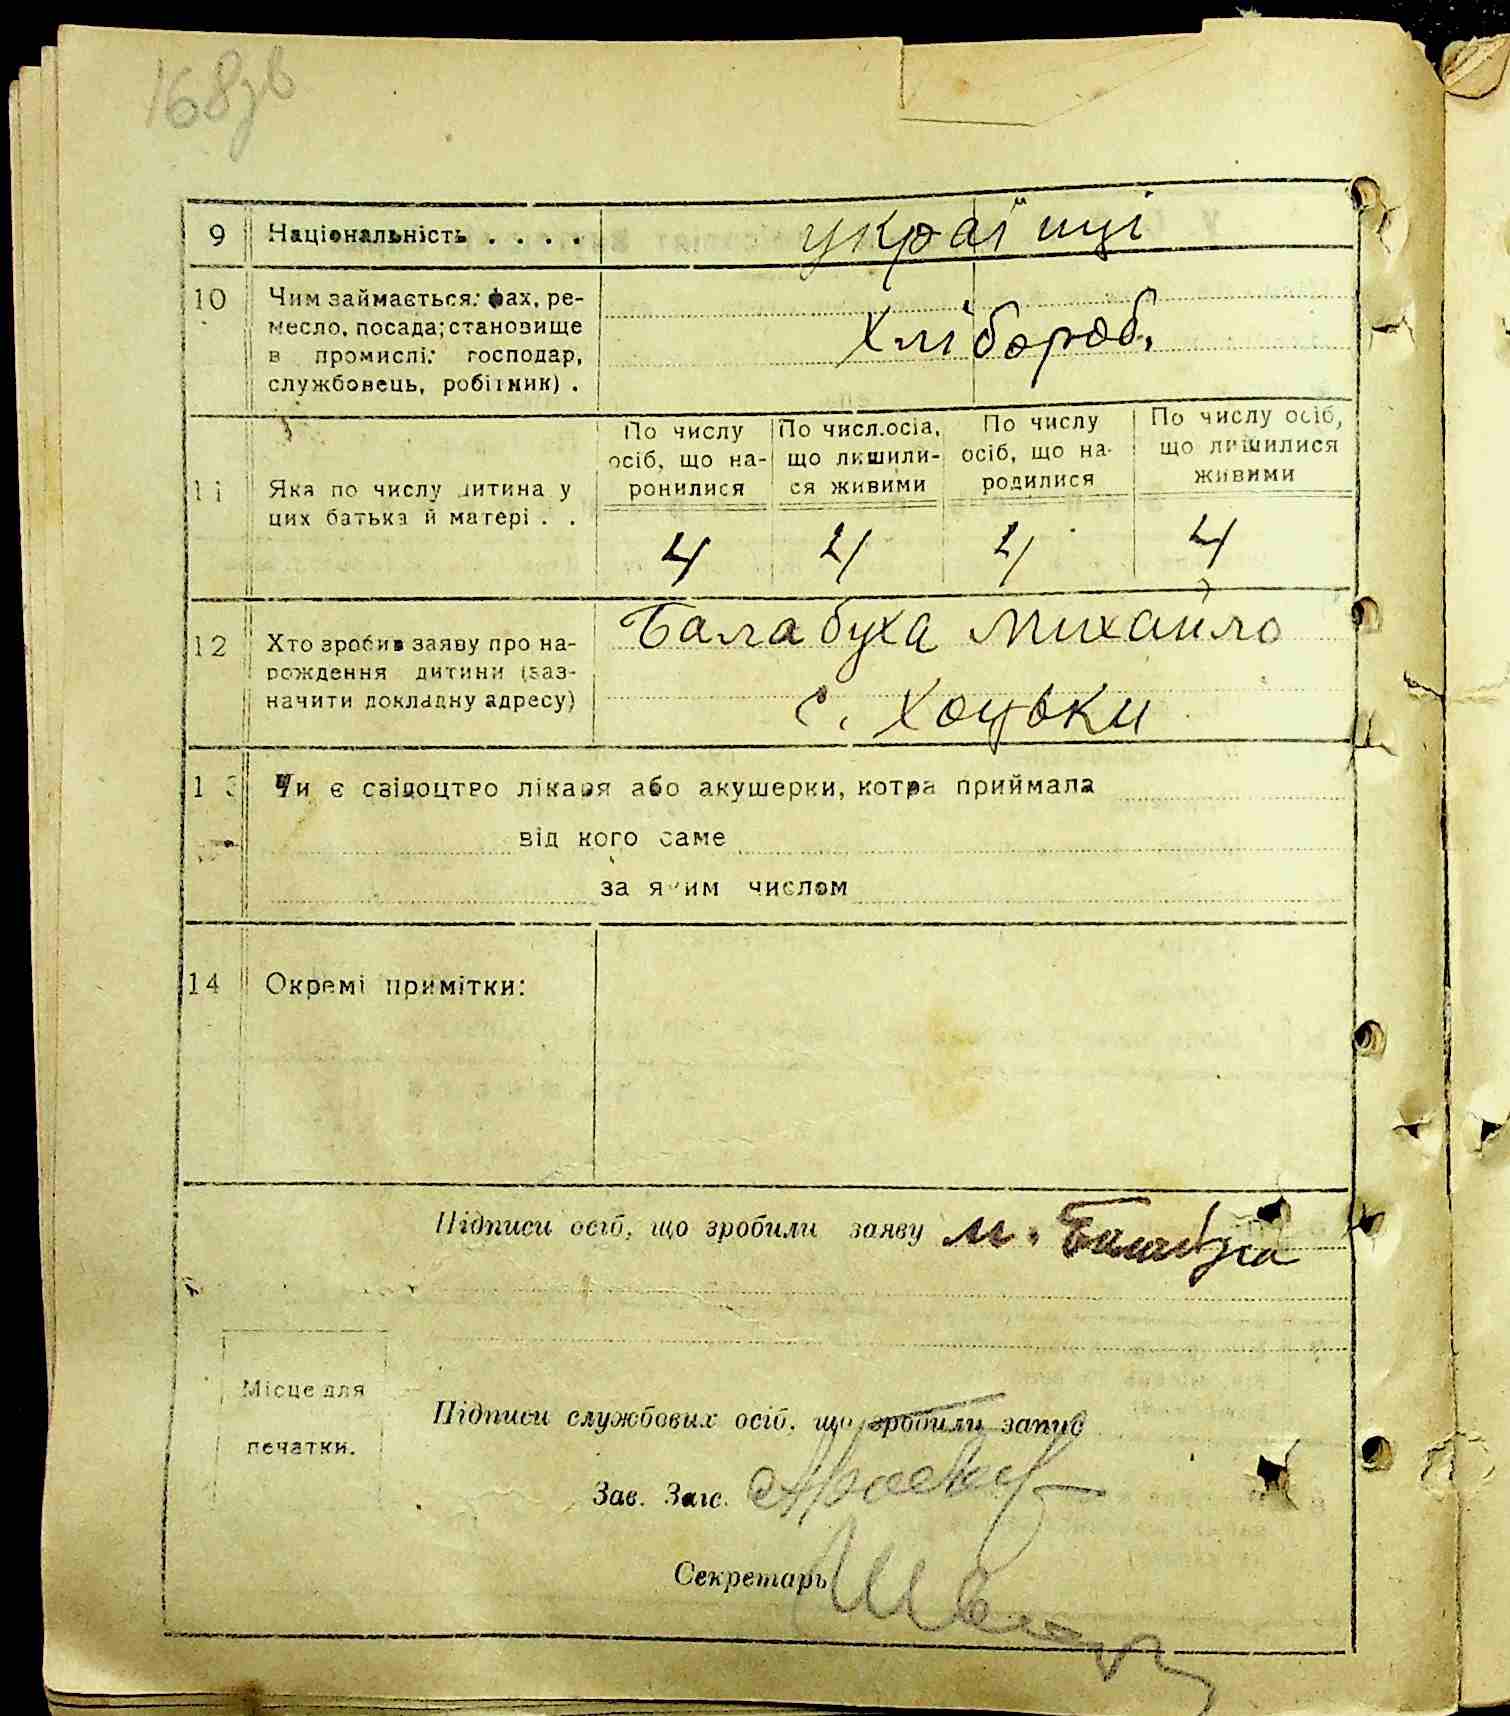 168зв
9 Національність . . . . українці
10 Чим займається: фах, ре-
месло, посада; становище
в промислі: господар,
службовець, робітник) .
Хлібороб.
По числу осіб, що на-ронилися
По числ.осіа, що лишили-ся живими
По числу осіб, що на-родилися
По числу осіб, що лишилися живими
11 Яка по числу дитина у
цих батька й матері . .
4 4 4 4
12 Хто зробив заяву про на-
рождення дитини (заз-
начити докладну адресу)
Балабуха Михайло
с. Хоцьки
13 Чи є свідоцтво лікаря або акушерки, котра приймала
від кого саме
за яким числом
14 Окремі примітки:
Підписи осіб, що зробили заяву М. Балабуха
Місце для
печатки.
Підписи службових осіб, що зробили запис
Зав. Загс.
Секретарь